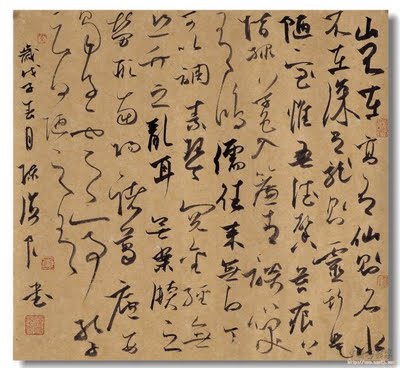 山不在高有仙則名水
不在深有龍則靈斯是
陋室惟吾德馨苔痕上
階綠草色入簾青談笑
有鴻儒往来無白丁
可以調素琴閱金經無
絲竹之亂耳無案牘之
勞形南陽諸葛廬西
蜀子雲亭孔子
云何陋之有
歲戊子春月 書